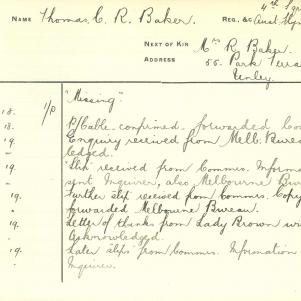 4th Sqn
NAME Thomas C. R. Baker. REG. &
Aust. Flyi
NEXT OF KIN Mrs R. Baker.
ADDRESS 55. Park Terra
Unley.
18. I/P "Missing".
18. P/Cable. confirmed. forwarded
19. Enquiry received from Melb. Burea
ledged.
19. Slip received from Commrs. Informa
" sent Inquirer, also Melbourne Bur
19. Further slip received from Commrs. Copy
" forwarded Melbourne Bureau.
19. Letter of thanks from Lady Brown wi
" Acknowledged.
19. Later slips from Commrs. Information
" Inquirer.